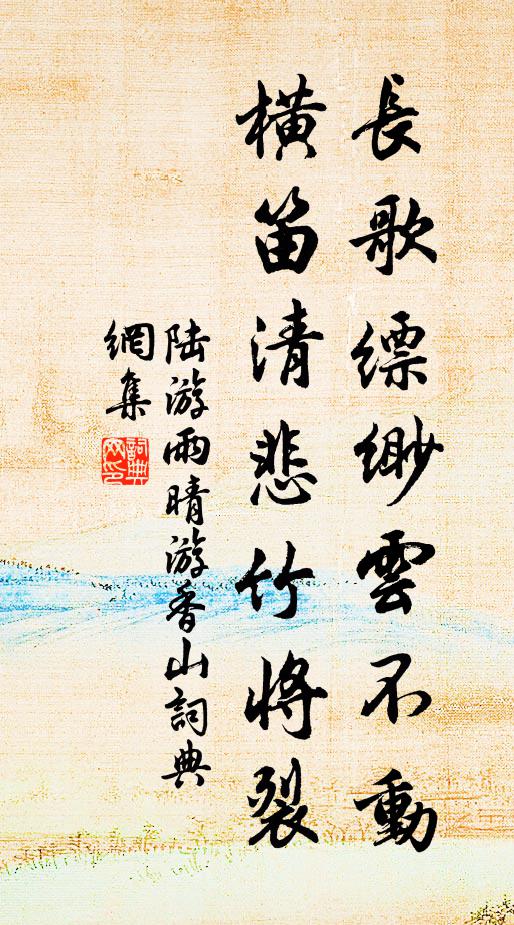 長歌縹緲雲不動
橫笛清悲竹將裂
陆游雨晴游香山詞典
網集
詞典
网印